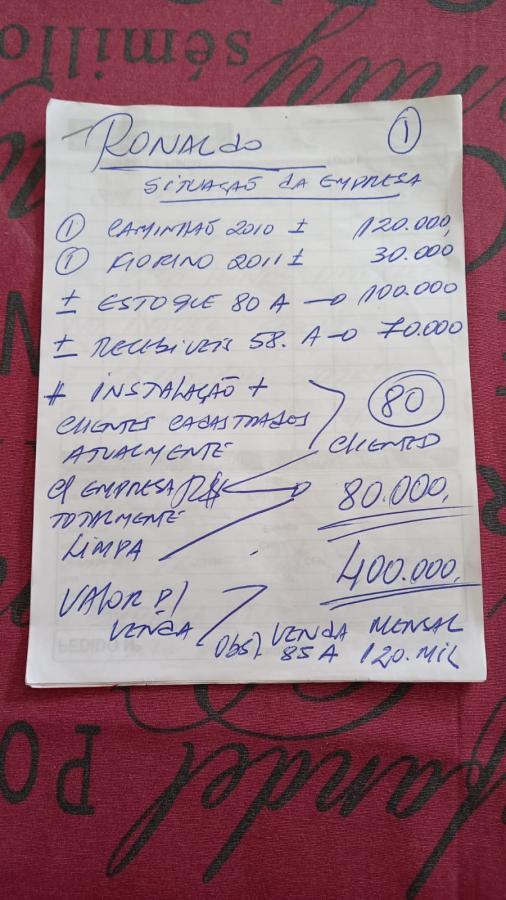 sémillo
RONALDO ①
SITUAÇÃO DA EMPRESA
① CAMINHÃO 2010 ± 120.000,
① FIORINO 2011 ± 30.000
± ESTOQUE 80 A → 100.000
± RECEBIVEIS 58. A → 70.000
# INSTALAÇÃO +
CLIENTES CADASTRADOS 80
ATUALMENTE CLIENTES
C/ EMPRESA R$ 80.000,
TOTALMENTE
LIMPA
400.000,
VALOR P/
VENDA
Obs) VENDA MENSAL
85 A 120.MIL
PEDIDO Nº